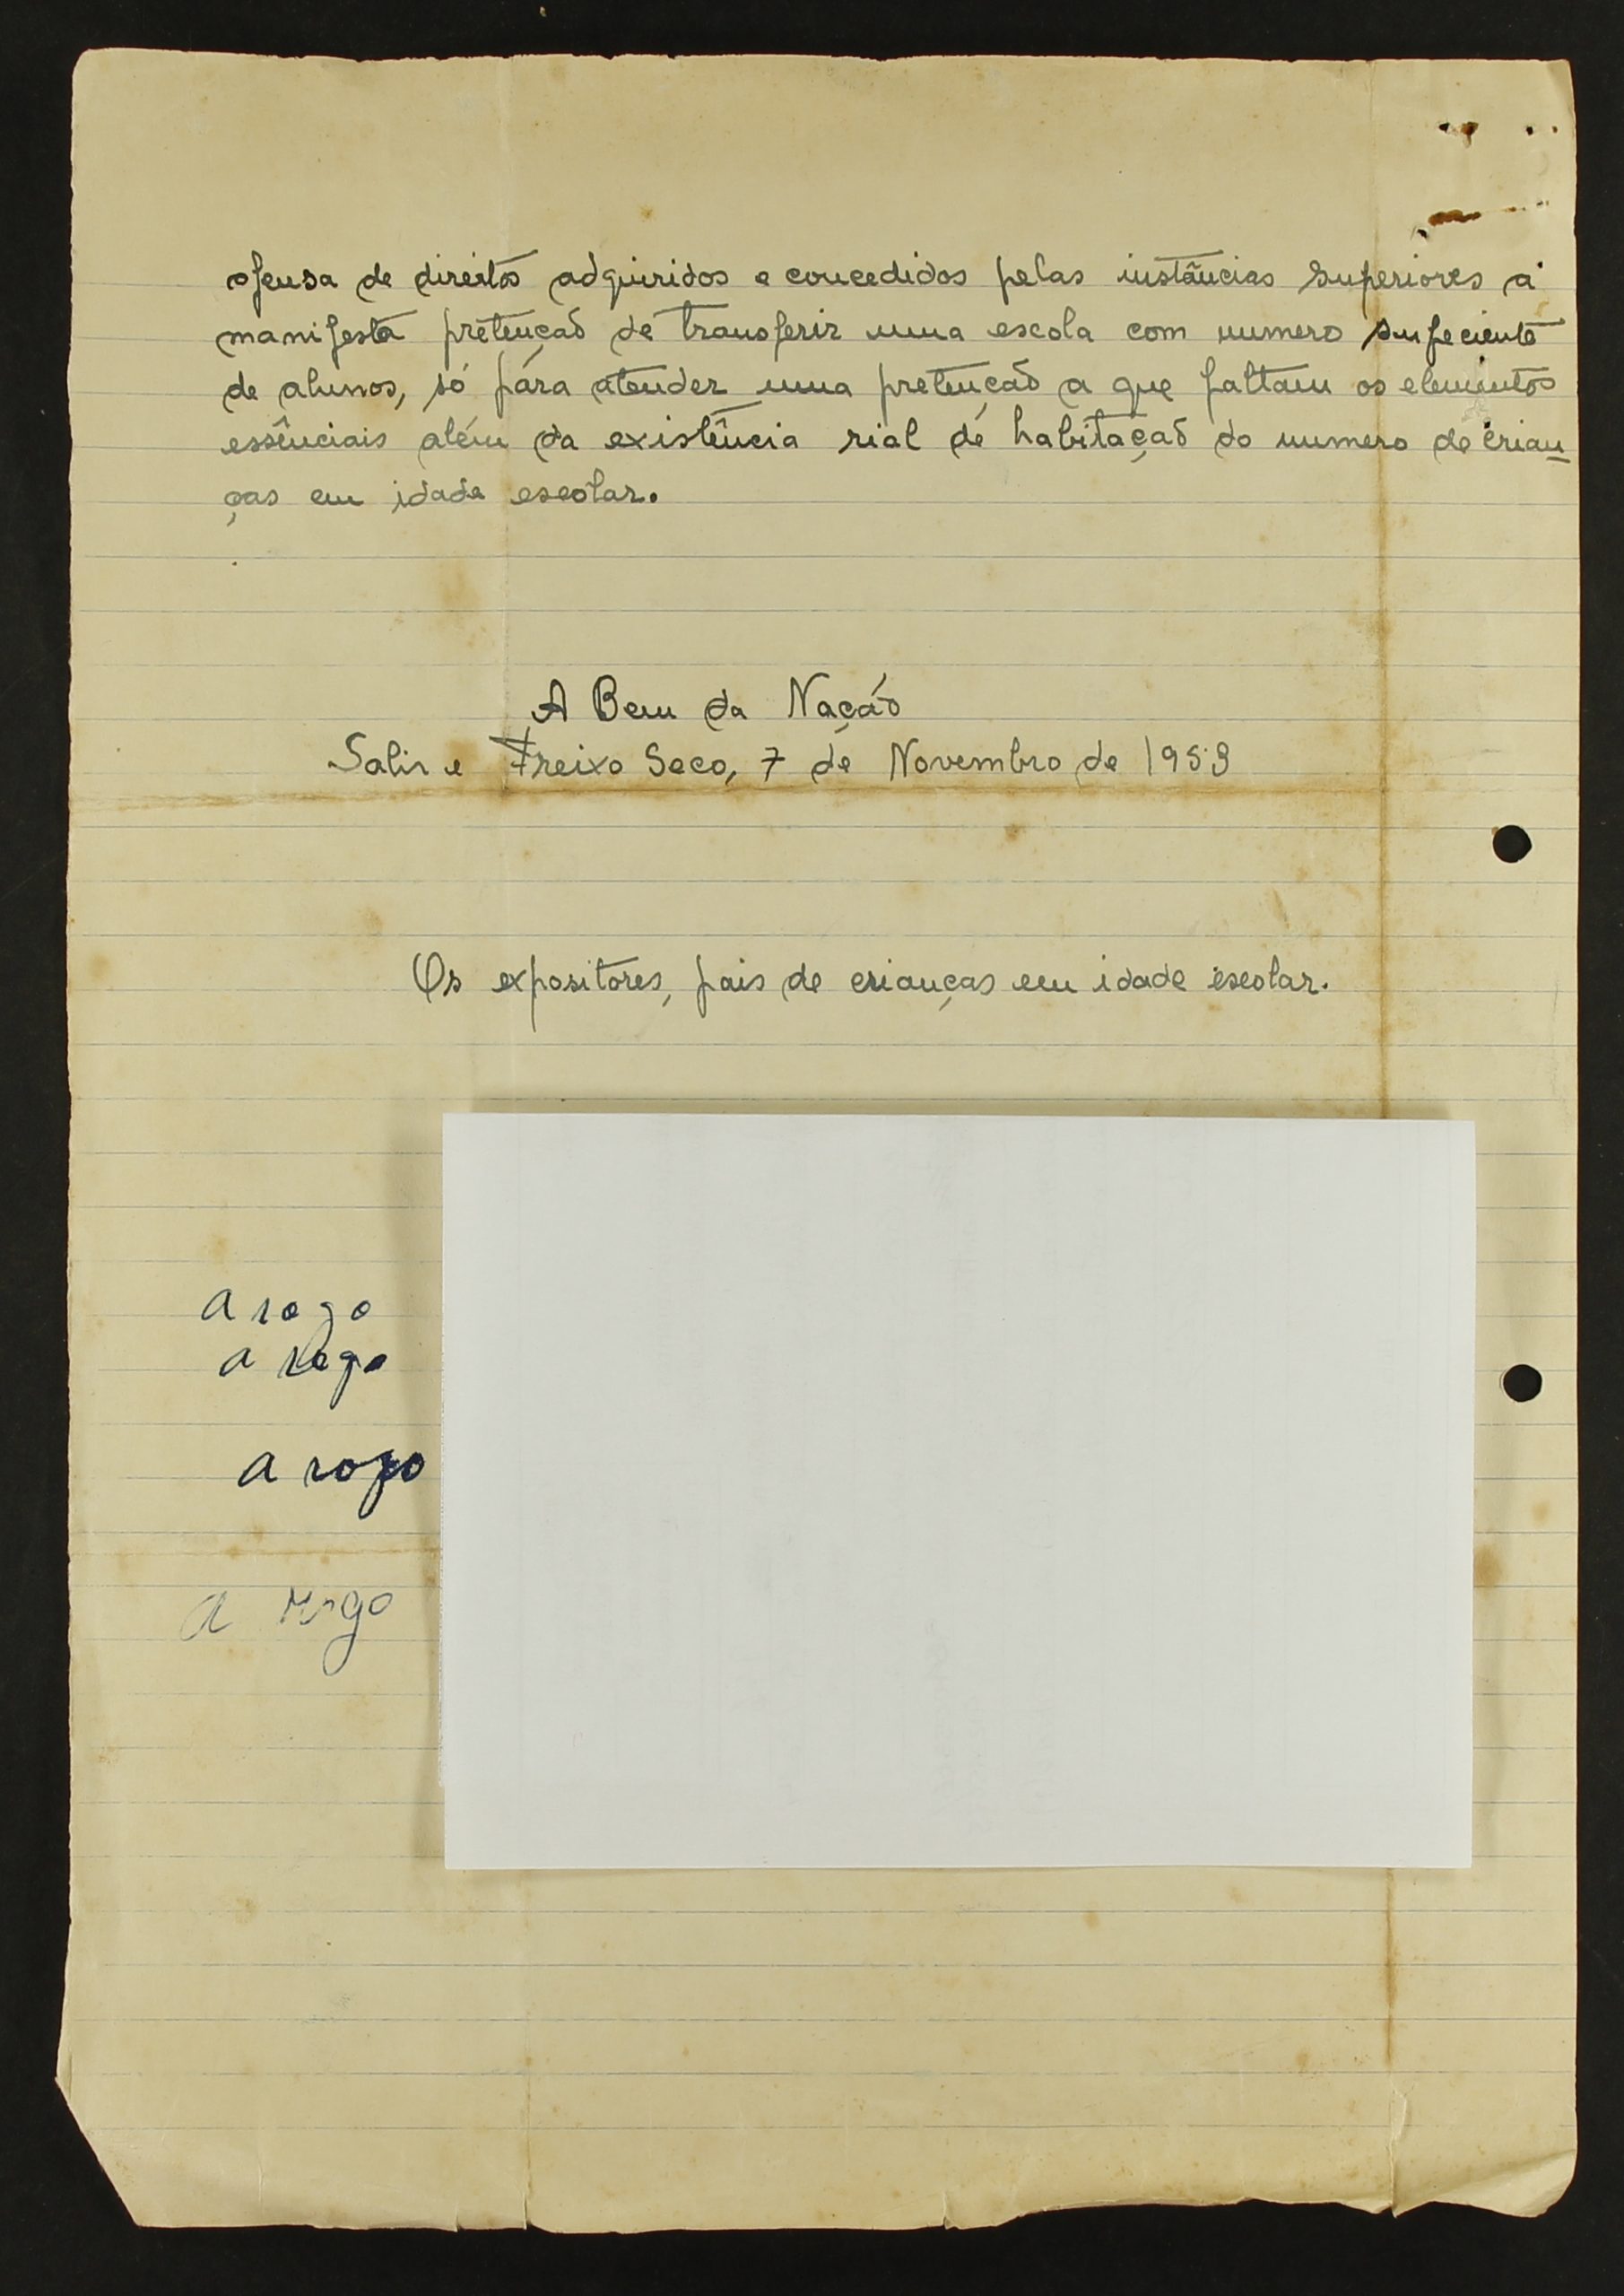 ofensa de direitos adquiridos e concedidos pelas instâncias superiores a
manifesta pretençaõ de transferir uma escola com numero sufeciente
de alunos, só pára atender uma pretençaõ a que faltam os elementos
essênciais além da existência rial de habitaçaõ do numero de crian=
ças em idade escolar.
A Bem da Naçáo
Salir e Freixo Seco, 7 de Novembro de 1953
Os expositores, pais de crianças em idade escolar.
a rogo
a rogo
a rogo
a rogo